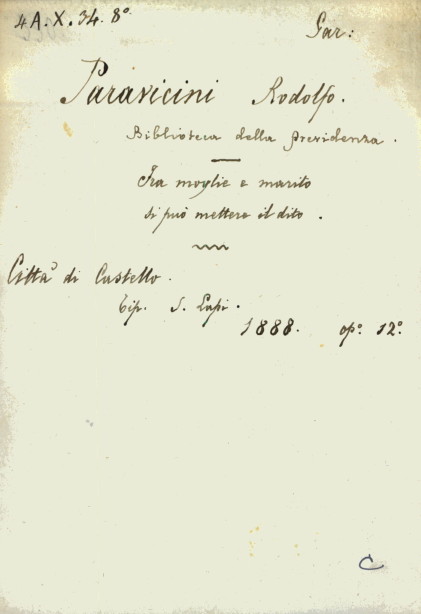 4 A. X. 34. 8º
Gar:
Paravicini Rodolfo.
Biblioteca della previdenza.
Fra moglie e marito
si può mettere il dito.
Città di Castello.
Tip. S. Lapi.
1888. opº. 12º.
C